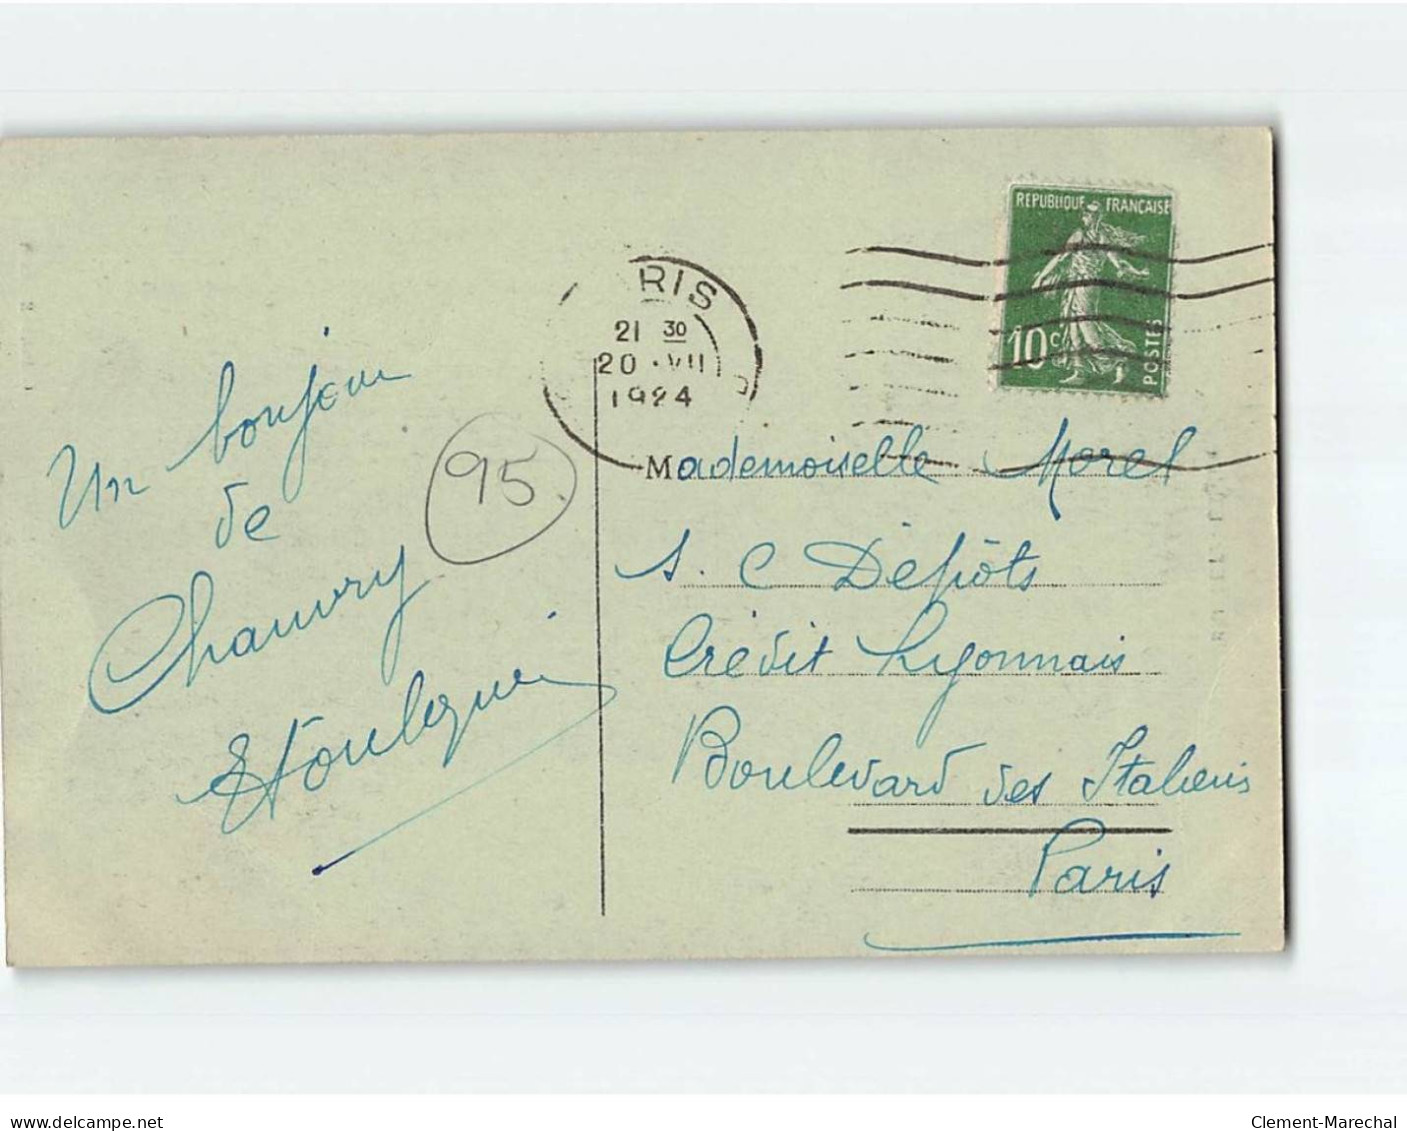 Un bonjour
de
Chauvry
95.
RIS
21 30
20 . VII
1924
REPUBLIQUE FRANÇAISE
10c
POSTES
Mademoiselle Morel
S. C Dépôts
Crédit Lyonnais
Boulevard des Italiens
Paris
www.delcampe.net
Clement-Marechal